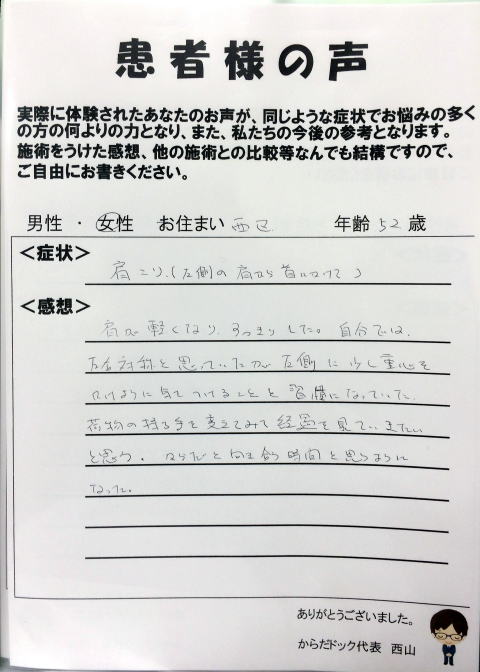 患者様の声
実際に体験されたあなたのお声が、同じような症状でお悩みの多く
の方の何よりの力となり、また、私たちの今後の参考となります。
施術をうけた感想、他の施術との比較等なんでも結構ですので、
ご自由にお書きください。
男性 ・ 女性 お住まい 西区 年齢 52 歳
＜症状＞
肩こり、(左側の肩から首にかけて)
＜感想＞
肩が軽くなり、すっきりした。自分では、
左右対称と思っていたが左側に少し重心を
かけように気をつけることと になっていた。
荷物の持る手を変えてみて経過を見ていきたい
と思う。からだと向き合う時間と思うように
なった。
ありがとうございました。
からだドック代表 西山